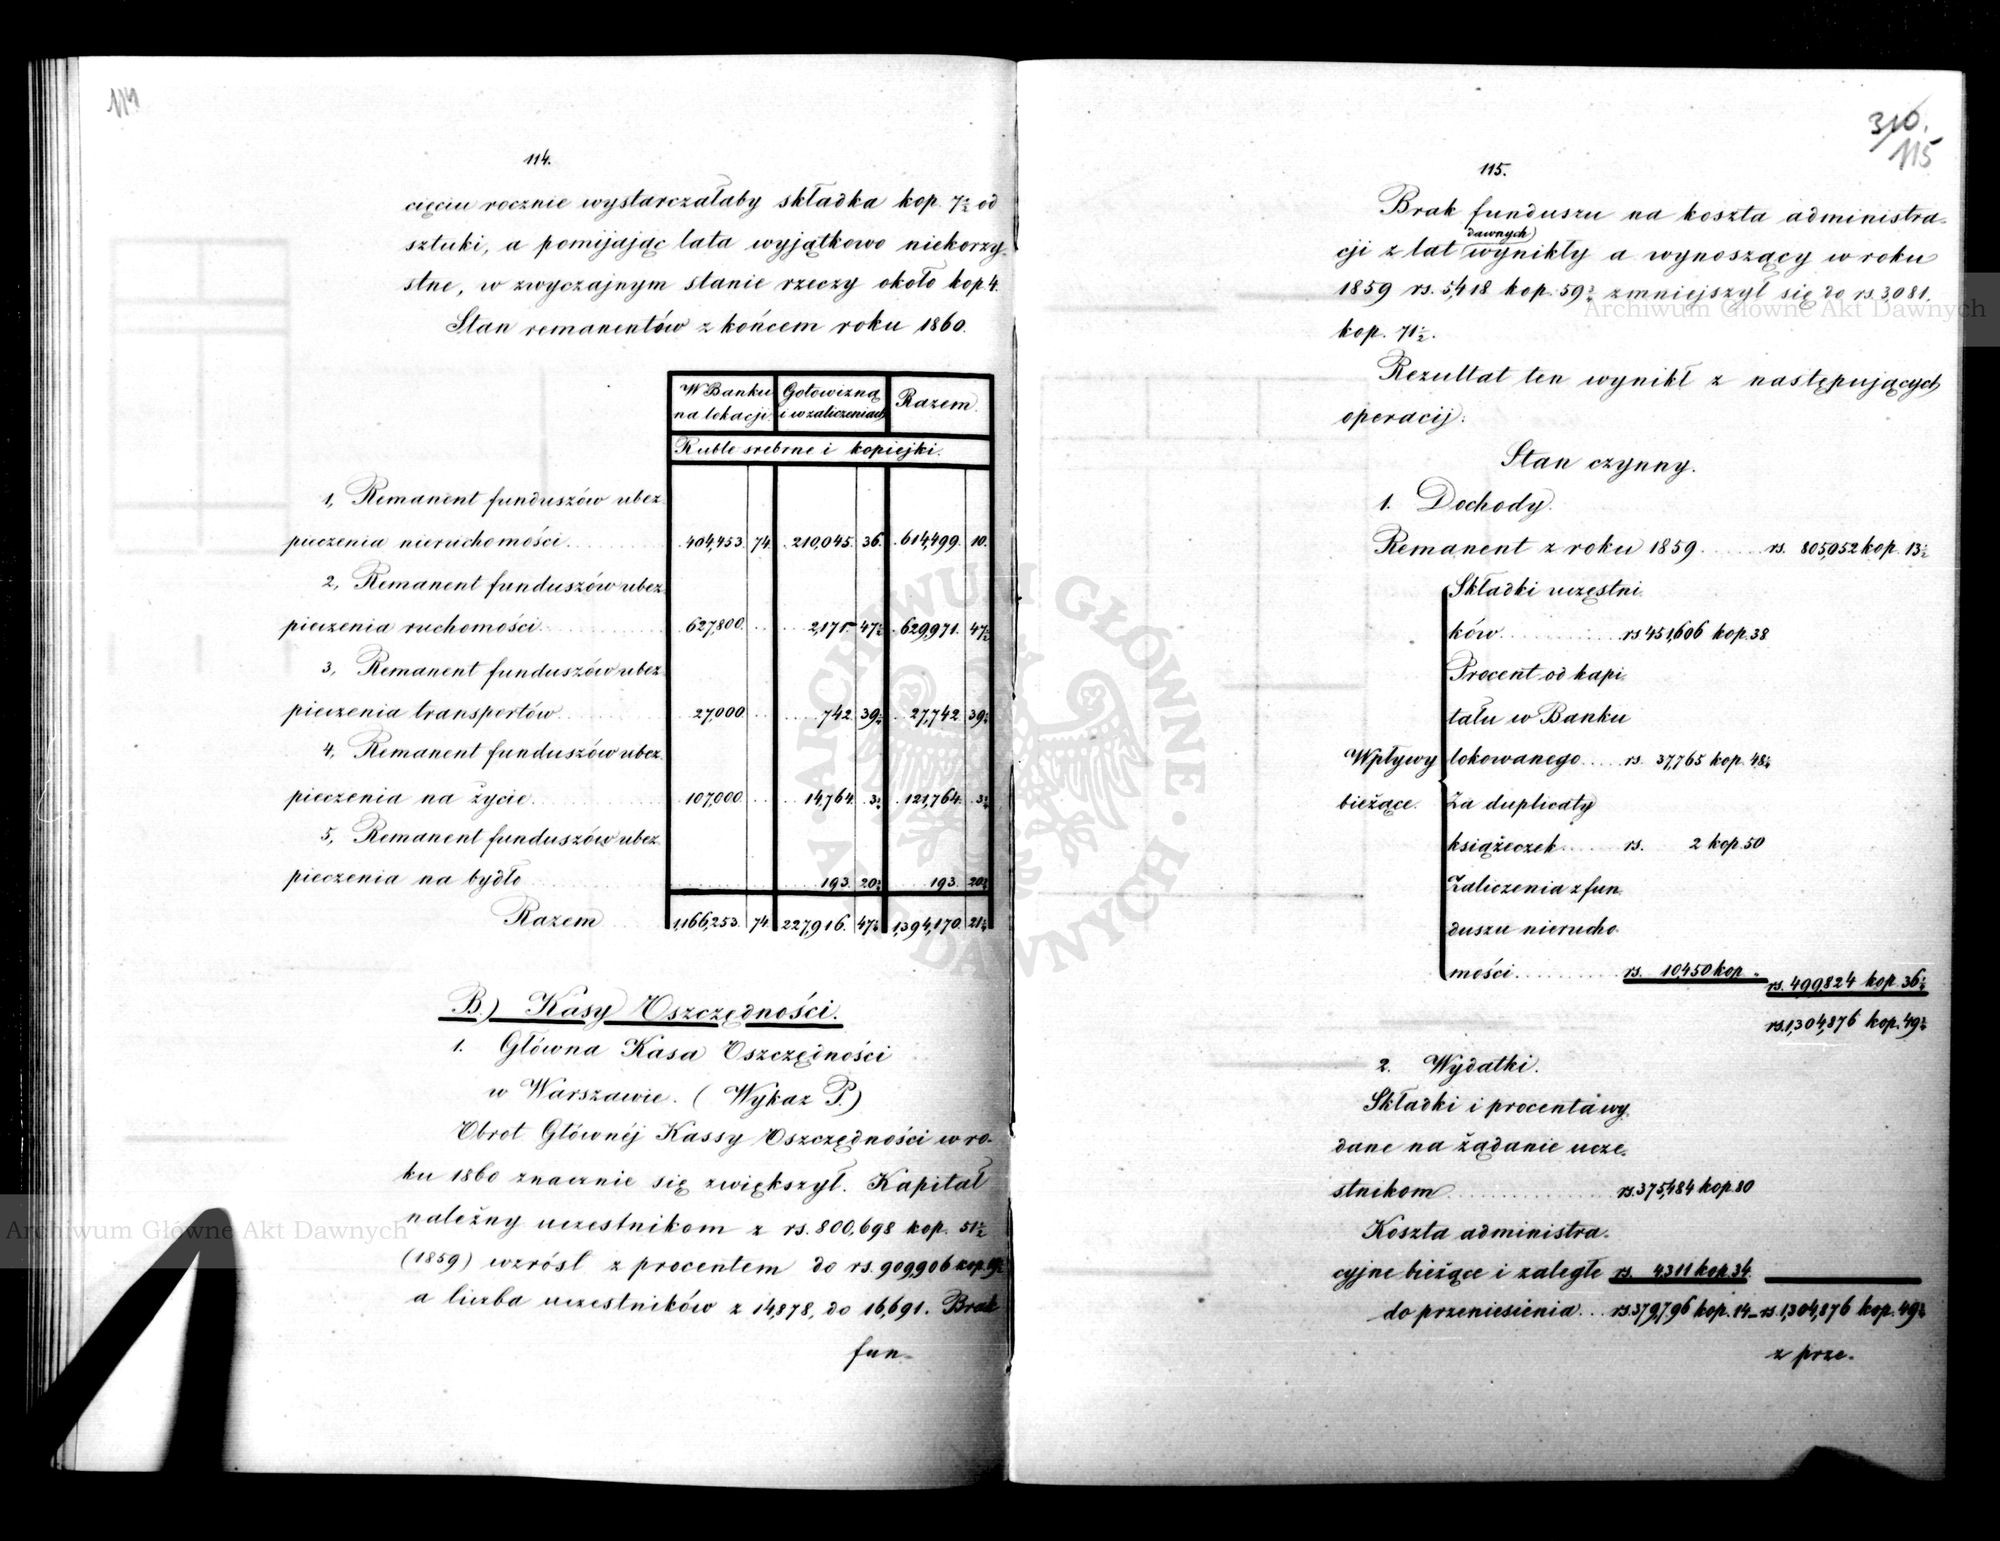 114
114.
cięciu rocznie wystarczałaby składka kop. 7½ od
sztuki, a pomijając lata wyjątkowo niekorzy-
stne, w zwyczajnym stanie rzeczy około kop. 4.
Stan remanentów z końcem roku 1860.
W Banku na lokacji. Gotowizną i w zaliczeniach Razem.
Ruble srebrne i kopiejki.
1, Remanent funduszów ubez
pieczenia nieruchomości 404,453. 74. 210,045. 36. 614,499. 10.
2, Remanent funduszów ubez
pieczenia ruchomości 627,800. 2,171. 47½ 629,971. 47½
3, Remanent funduszów ubez
pieczenia transportów 27,000 742 39½ 27,742 39½
4, Remanent funduszów ubez.
pieczenia na życie 107,000. 14,764. 3½ 121,764. 3½
5, Remanent funduszów ubez.
pieczenia na bydło 193. 20½ 193. 20½
Razem 1,166,253. 74. 227,916. 47½ 1,394,170. 21½
B.) Kasy Oszczędności.
1. Główna Kasa Oszczędności
w Warszawie. (Wykaz P.)
Obrot Głównéj Kassy Oszczędności w ro-
ku 1860 znacznie się zwiększył. Kapitał
należny uczestnikom z rs. 800,698 kop. 51½
(1859) wzrósł z procentem do rs. 909,906 kop.
a liczba uczestników z 14,878, do 16,691. Brak
fun-
310.
115
115.
Brak funduszu na koszta administra-
dawnych
cji z lat wynikły a wynoszący w roku
1859 rs. 5,418 kop. 59½ zmniejszył się do rs 3,081.
kop. 71½.
Rezultat ten wynikł z następujących
operacij:
Stan czynny.
1. Dochody.
Remanent z roku 1859 rs. 805,052 kop. 13½
Składki uczęstni-
ków rs 451,606 kop. 38
Procent od kapi-
tału w Banku
Wpływy lokowanego rs. 37,765 kop. 48½
bieżące. Za duplicaty
książeczek rs. 2 kop. 50
Zaliczenia z fun-
duszu nierucho-
mości rs. 10,450 kop - rs. 499,824 kop. 36½
rs. 1,304,876 kop. 49½
2. Wydatki.
Składki i procenta wy-
dane na żądanie ucze-
stnikom rs. 375,484 kop. 80
Koszta administra-
cyjne bieżące i zaległe rs. 4311 kop. 34.
do przeniesienia rs. 379,796 kop. 14 - rs. 1,304,876 kop. 49½
z prze-
Archiwum Główne Akt Dawnych
Archiwum Główne Akt Dawnych
ARCHIWUM GŁÓWNE AKT DAWNYCH